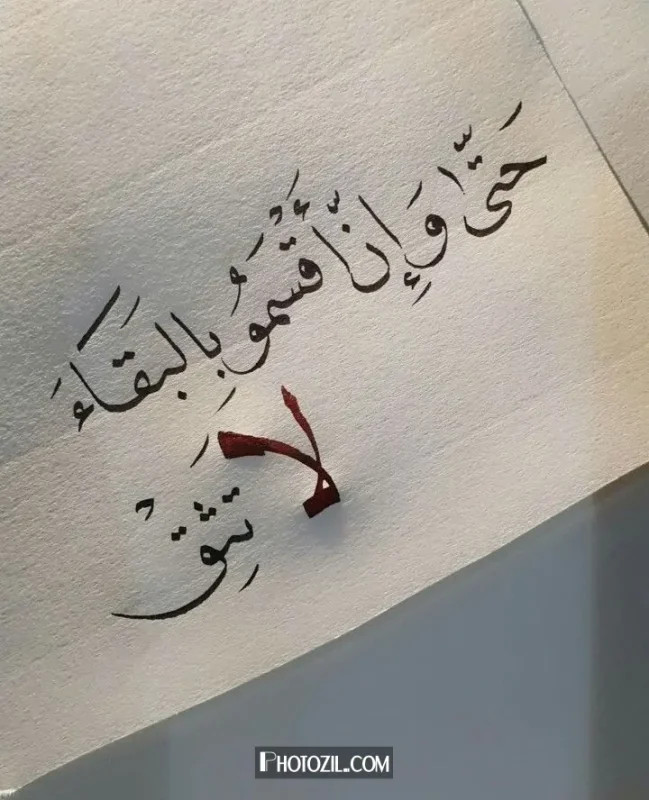 حَتَّى وَإِنّ أَقْسَمُو بِالبَقَاءَ
لَا تَثِقْ
PHOTOZIL.COM